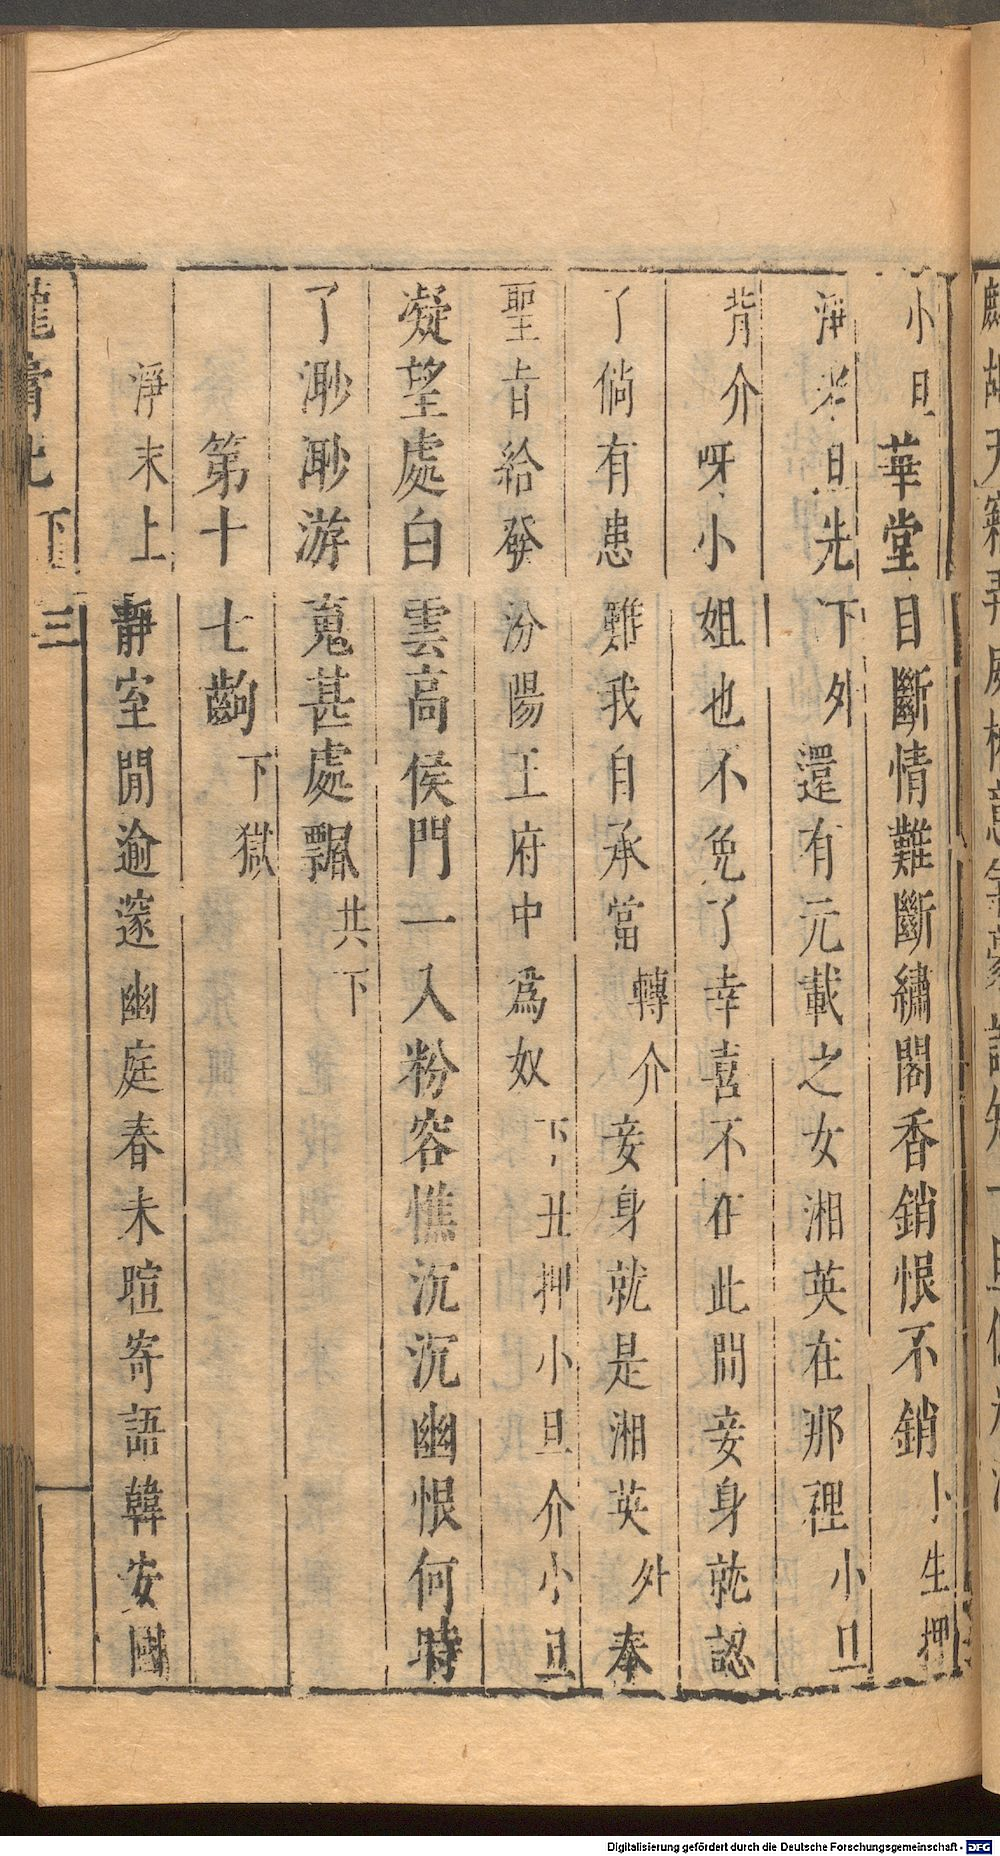 小旦華堂目斷情難斷繡閣香銷恨不銷小生押
淨老旦先下外還有元載之女湘英在那裡小旦
背介呀小姐也不免了幸喜不在此間妾身就認
了倘有患難我自承當轉介妾身就是湘英外奉
聖旨給發汾陽王府中爲奴下丑押小旦介小旦
凝望處白雲高侯門一入粉容憔沉沉幽恨何時
了渺渺游䰟甚處飄共下
第十七齣下獄
淨末上靜室閒逾邃幽庭春未暄寄語韓安國
龍膏記下 三
Digitalisierung gefördert durch die Deutsche Forschungsgemeinschaft - DFG